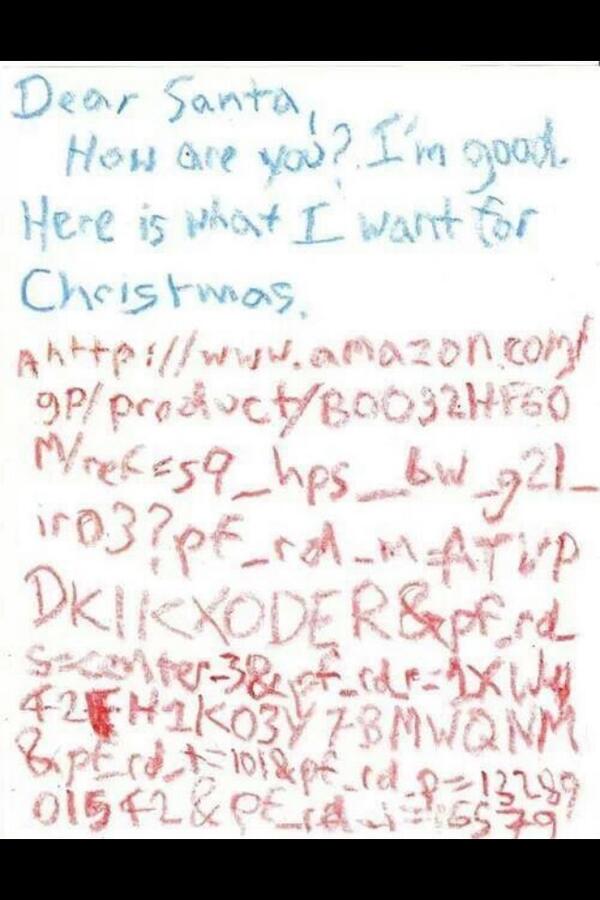 Dear Santa,
How are you? I'm good.
Here is what I want for
Christmas.
http://www.amazon.com/
gp/product/B0032HF60
M/ref=s9_hps_bw_g21_
ir03?pf_rd_m=ATVP
DKIKX0DER&pf_rd_
s=center-3&pf_rd_r=1XWW
42FH1K03Y78MWQNM
&pf_rd_t=101&pf_rd_p=13289
01542&pf_rd_i=16579